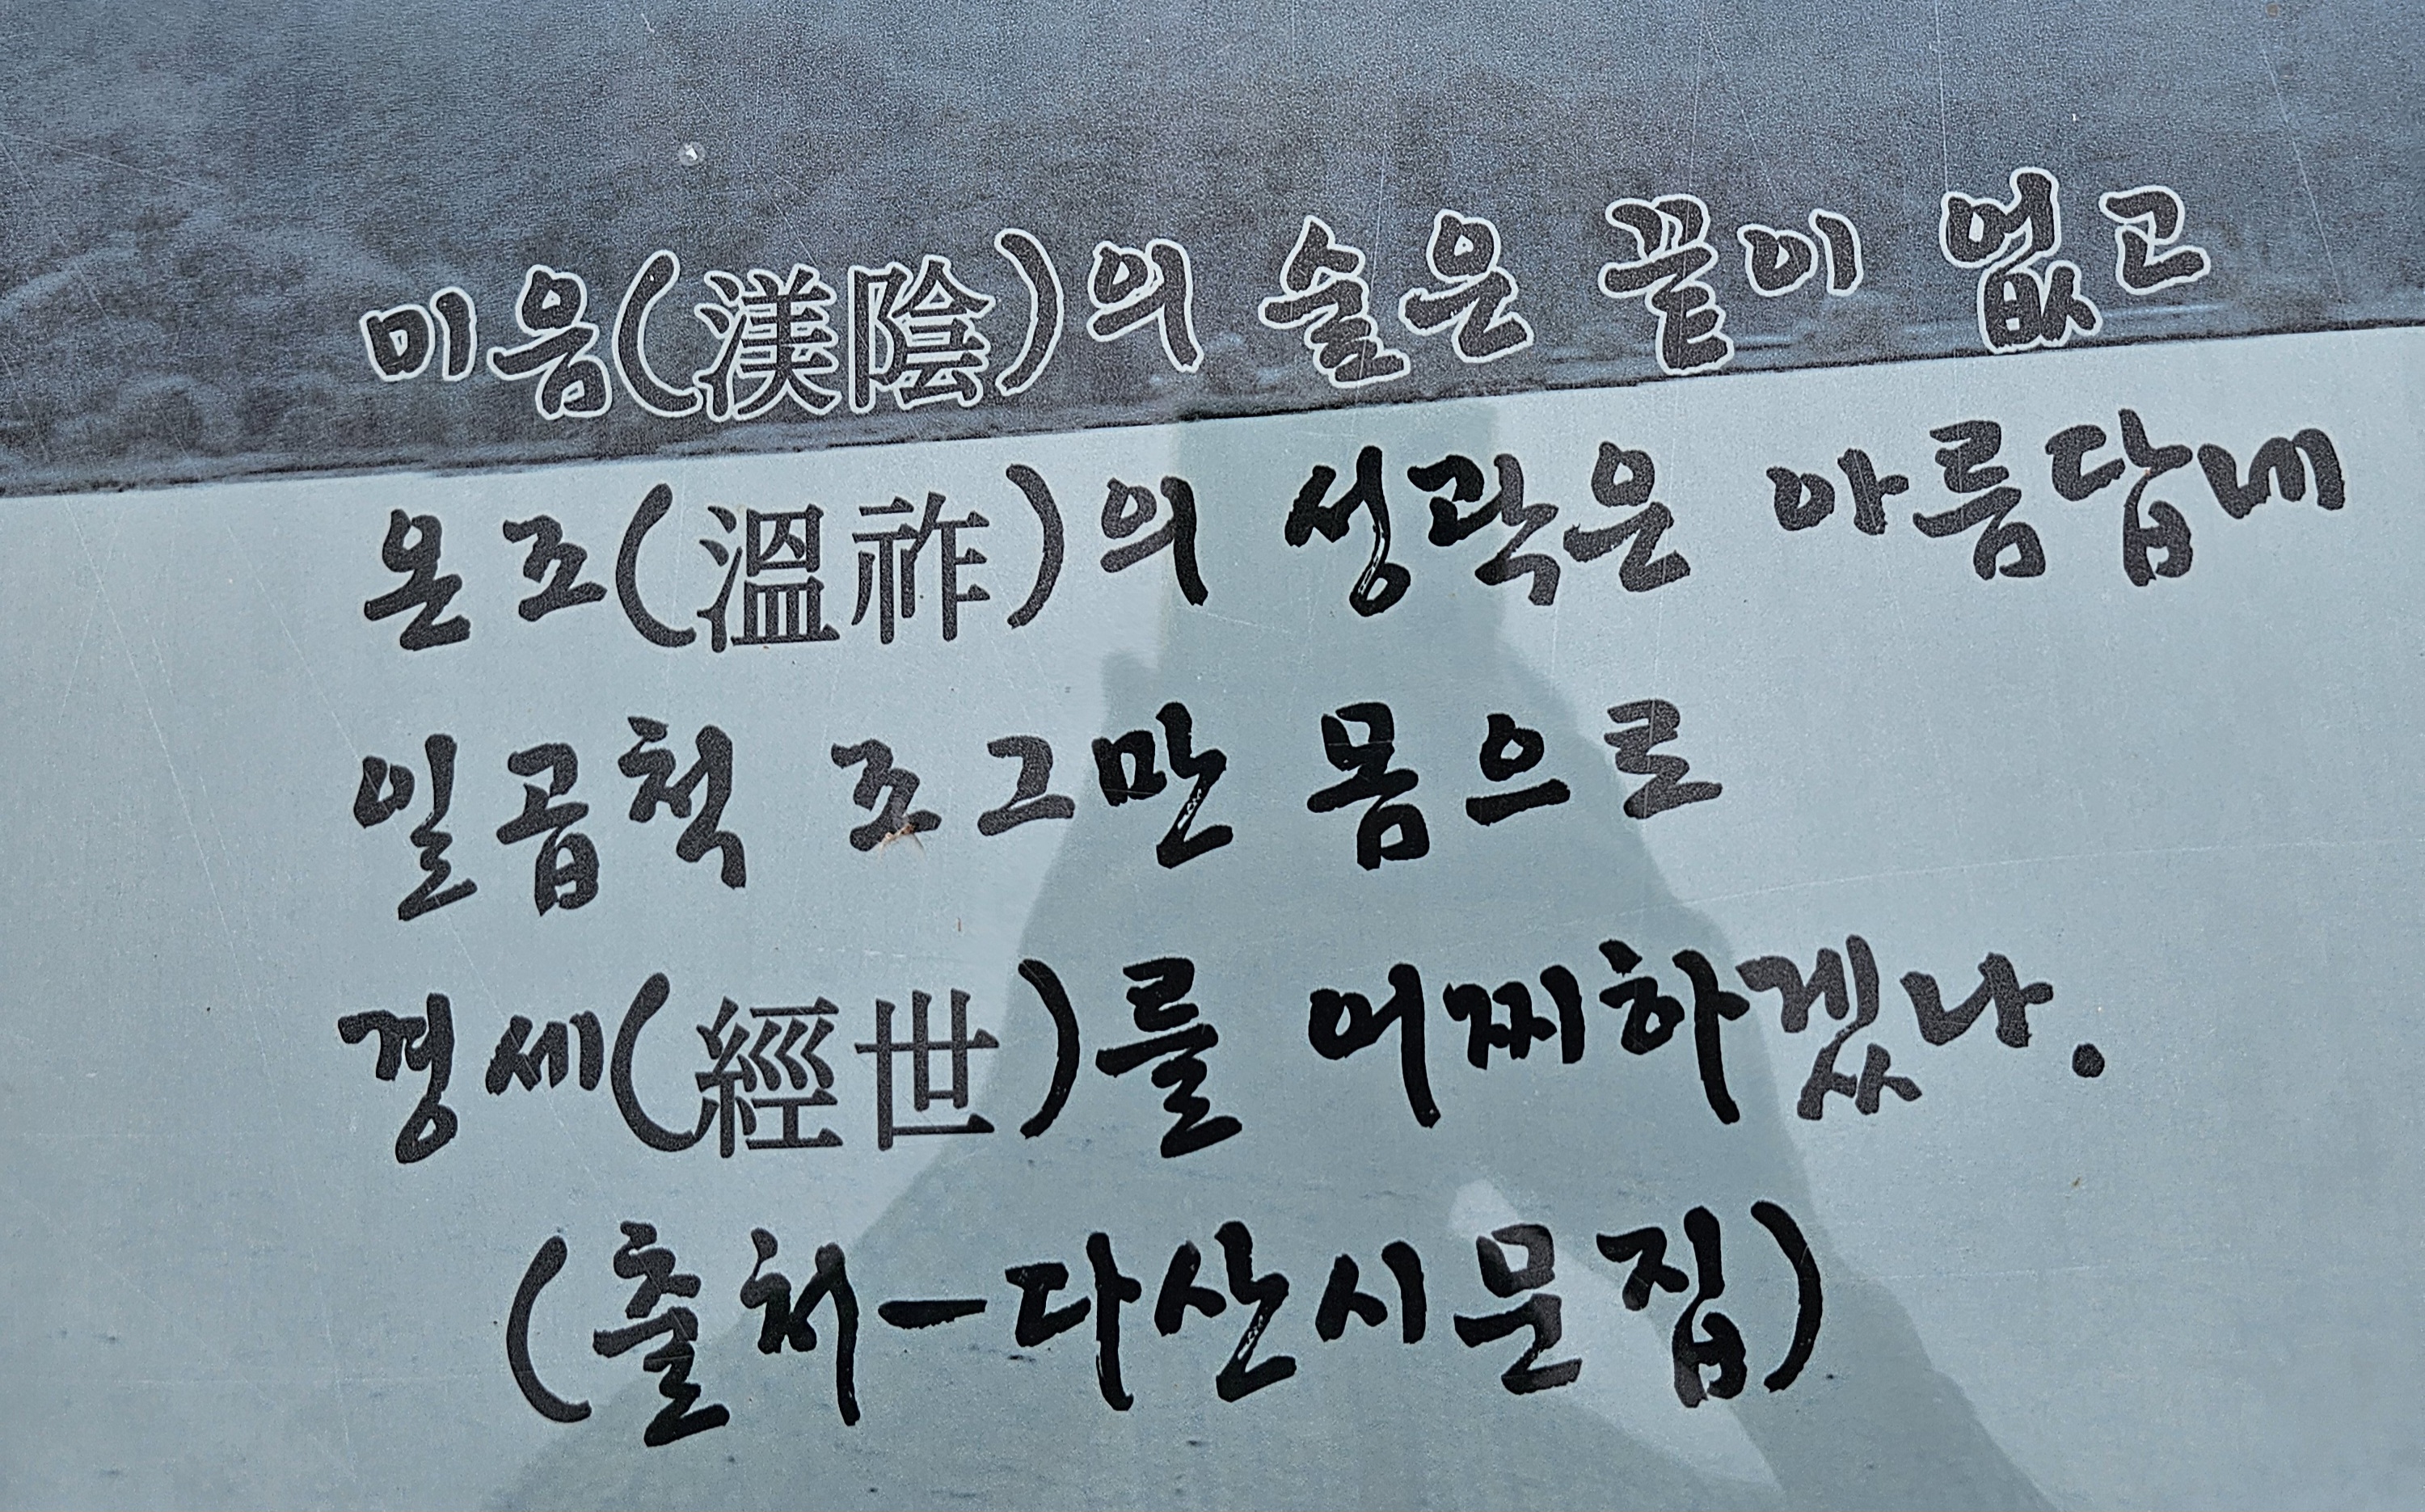 미음(渼陰)의 술은 끝이 없고
온조(溫祚)의 성곽은 아름답네
일곱척 조그만 몸으로
경세(經世)를 어찌하겠나.
(출처-다산시문집)